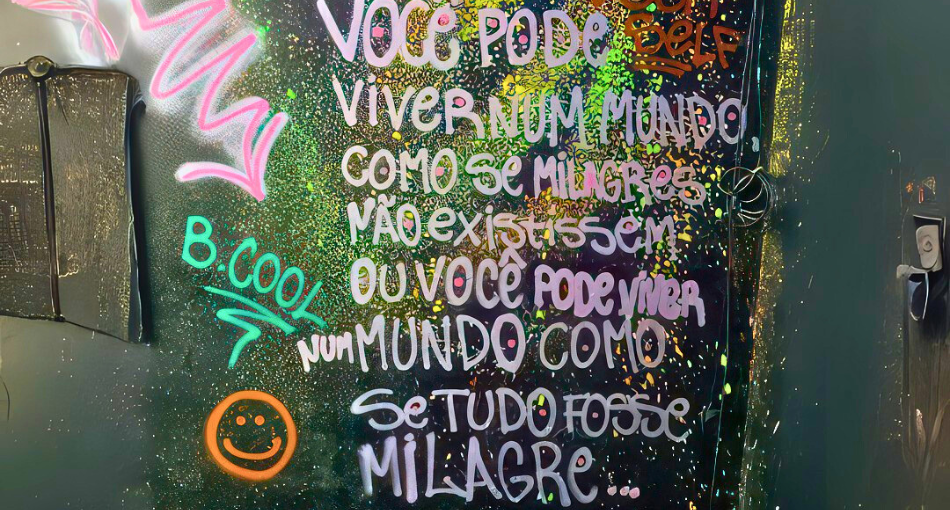 VOCÊ PODE
SELF
VIVER NUM MUNDO
COMO SE MILAGRES
NÃO existissem
OU VOCÊ PODE VIVER
NUM MUNDO COMO
Se TUDO FOSSe
MILAGRe...
B.COOL